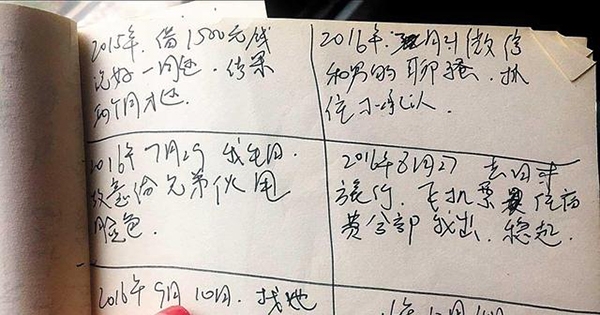 2015年.借1500元钱
说好一周还.结果
两个月才还.
2016年.2月21微信
和男的聊骚.抓
住不承认.
2016年7月29 我生日.
故意给兄弟伙甩
脸色.
2016年8月27 去日本
旅行.飞机票
费全部我出.稳起.
2016年9月10月.找她